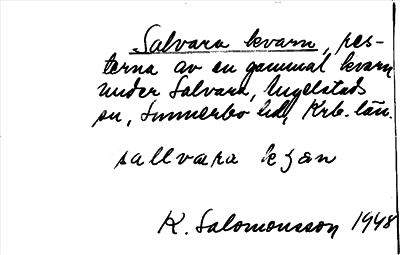 Salvara kvarn, res-
terna av en gammal kvarn
under Salvara, Angelstads
sn, Sunnerbo hd, Krb. län.
sallvara
K. Salomonsson 1948